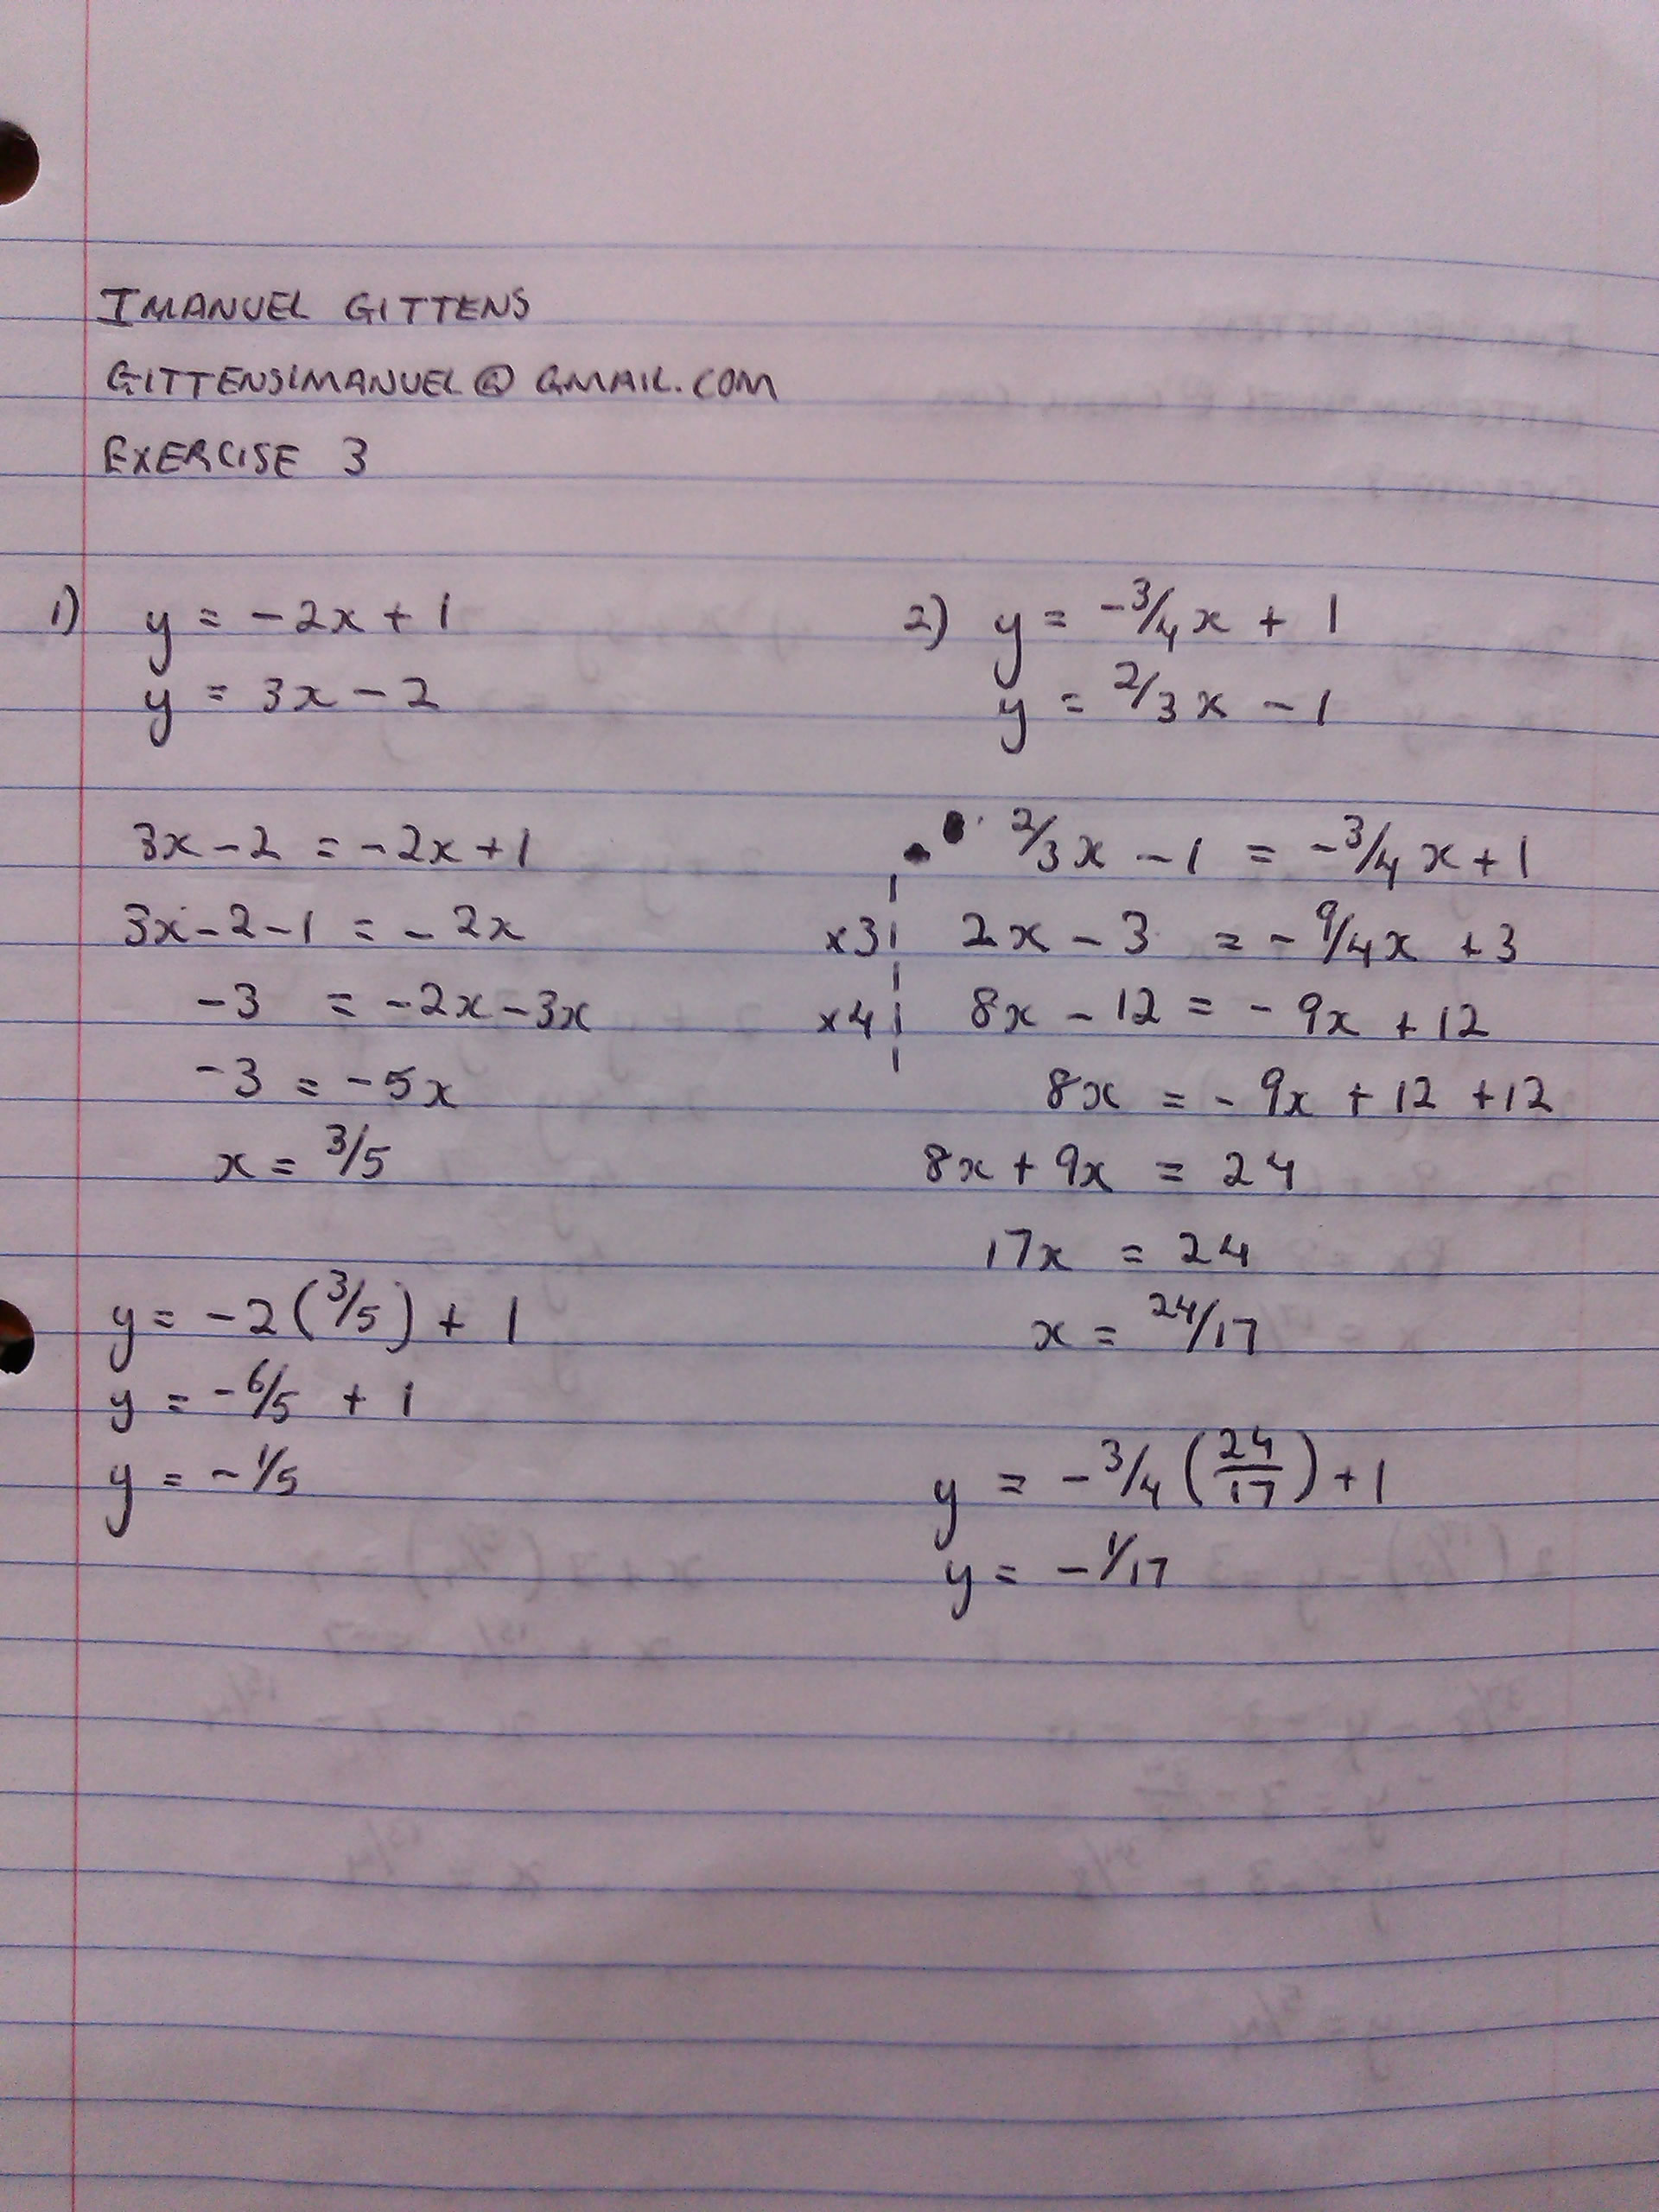 IMANUEL GITTENS
GITTENSIMANUEL@GMAIL.COM
EXERCISE 3
1) y = -2x + 1
y = 3x - 2
3x - 2 = -2x + 1
3x - 2 - 1 = -2x
-3 = -2x - 3x
-3 = -5x
x = 3/5
y = -2(3/5) + 1
y = -6/5 + 1
y = -1/5
2) y = -3/4x + 1
y = 2/3x - 1
2/3x - 1 = -3/4x + 1
x3 2x - 3 = -9/4x + 3
x4 8x - 12 = -9x + 12
8x = -9x + 12 + 12
8x + 9x = 24
17x = 24
x = 24/17
y = -3/4(24/17) + 1
y = -1/17